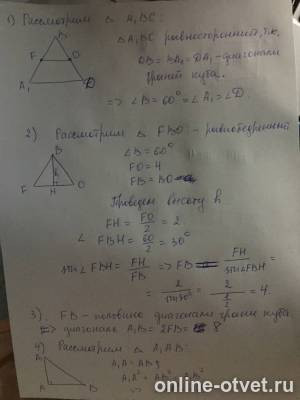 1) Рассмотрим △ A₁BC:
B
△ A₁BC равносторонний, т.к.
F O
DB = BA₁ = DA₁ - диагонали
граней куба.
A₁ D
=> ∠B = 60° = ∠A₁ = ∠D
2) Рассмотрим △ FBO - равнобедренный
B
∠B = 60°
FO = 4
h
FB = BO
F H O
Проведем высоту h
FH = FO/2 = 2
∠ FBH = 60/2 = 30°
sin ∠FBH = FH/FB => FB = FH/sin∠FBH =
= 2/sin30° = 2/(1/2) = 4.
3) FB - половина диагонали грани куба
=> диагональ A₁B = 2FB = 8
4) Рассмотрим △ A₁AB:
A₁
A₁A = AB
A₁A² = AB²
A B
online-otvet.ru